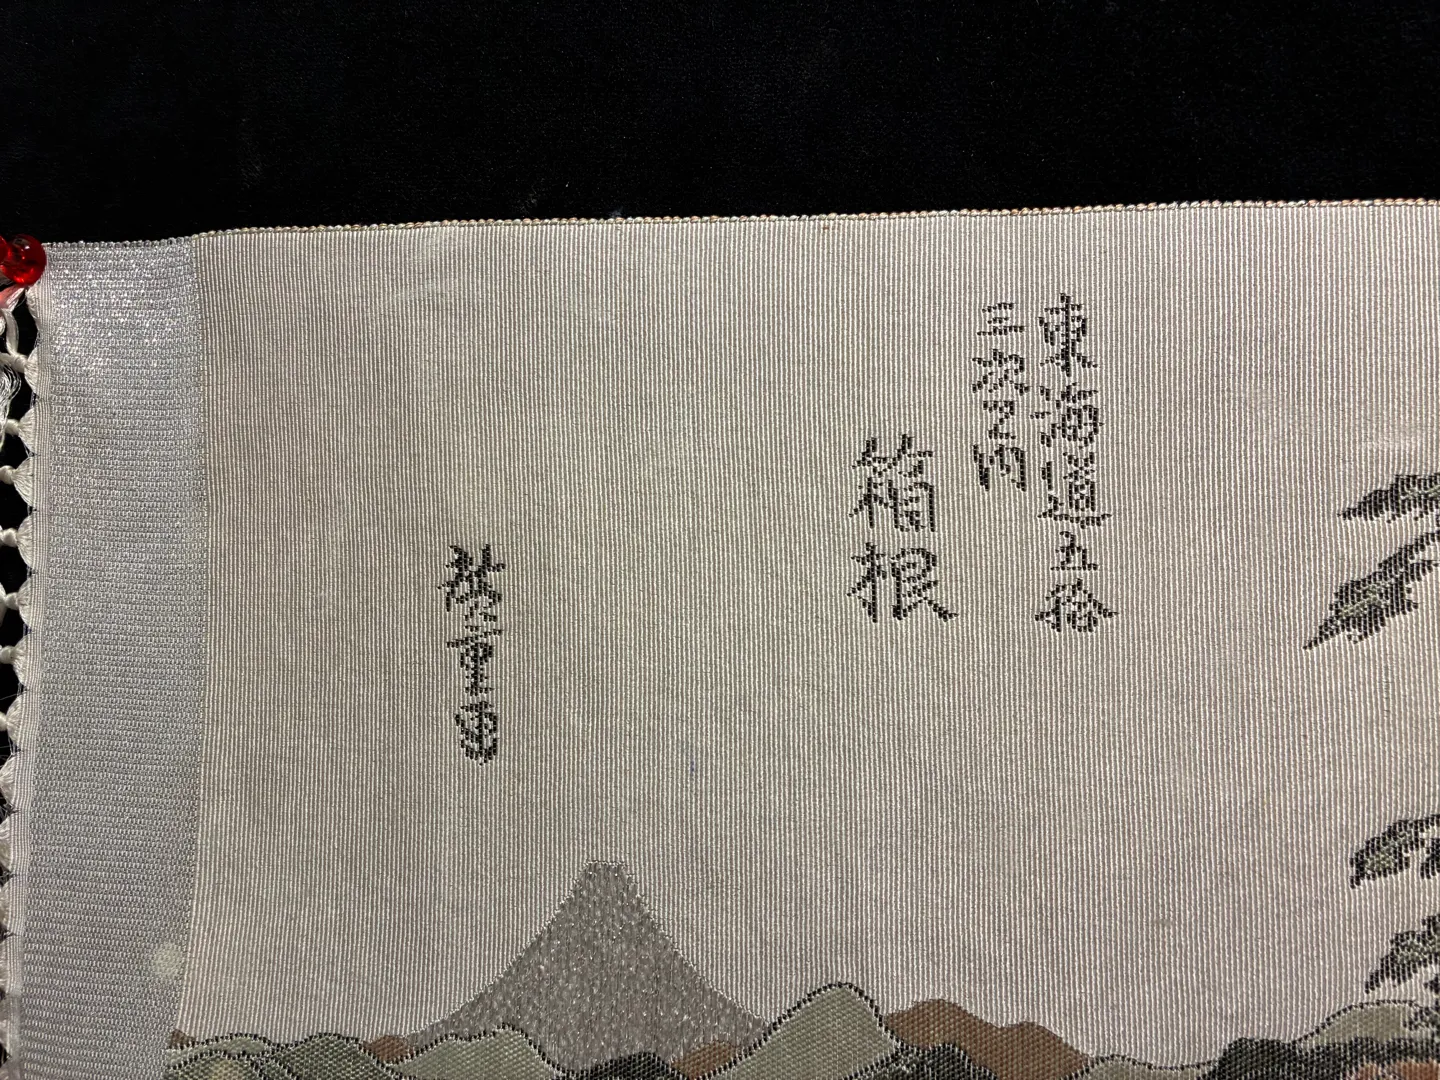 東海道五拾
三次之内
箱根
広重画